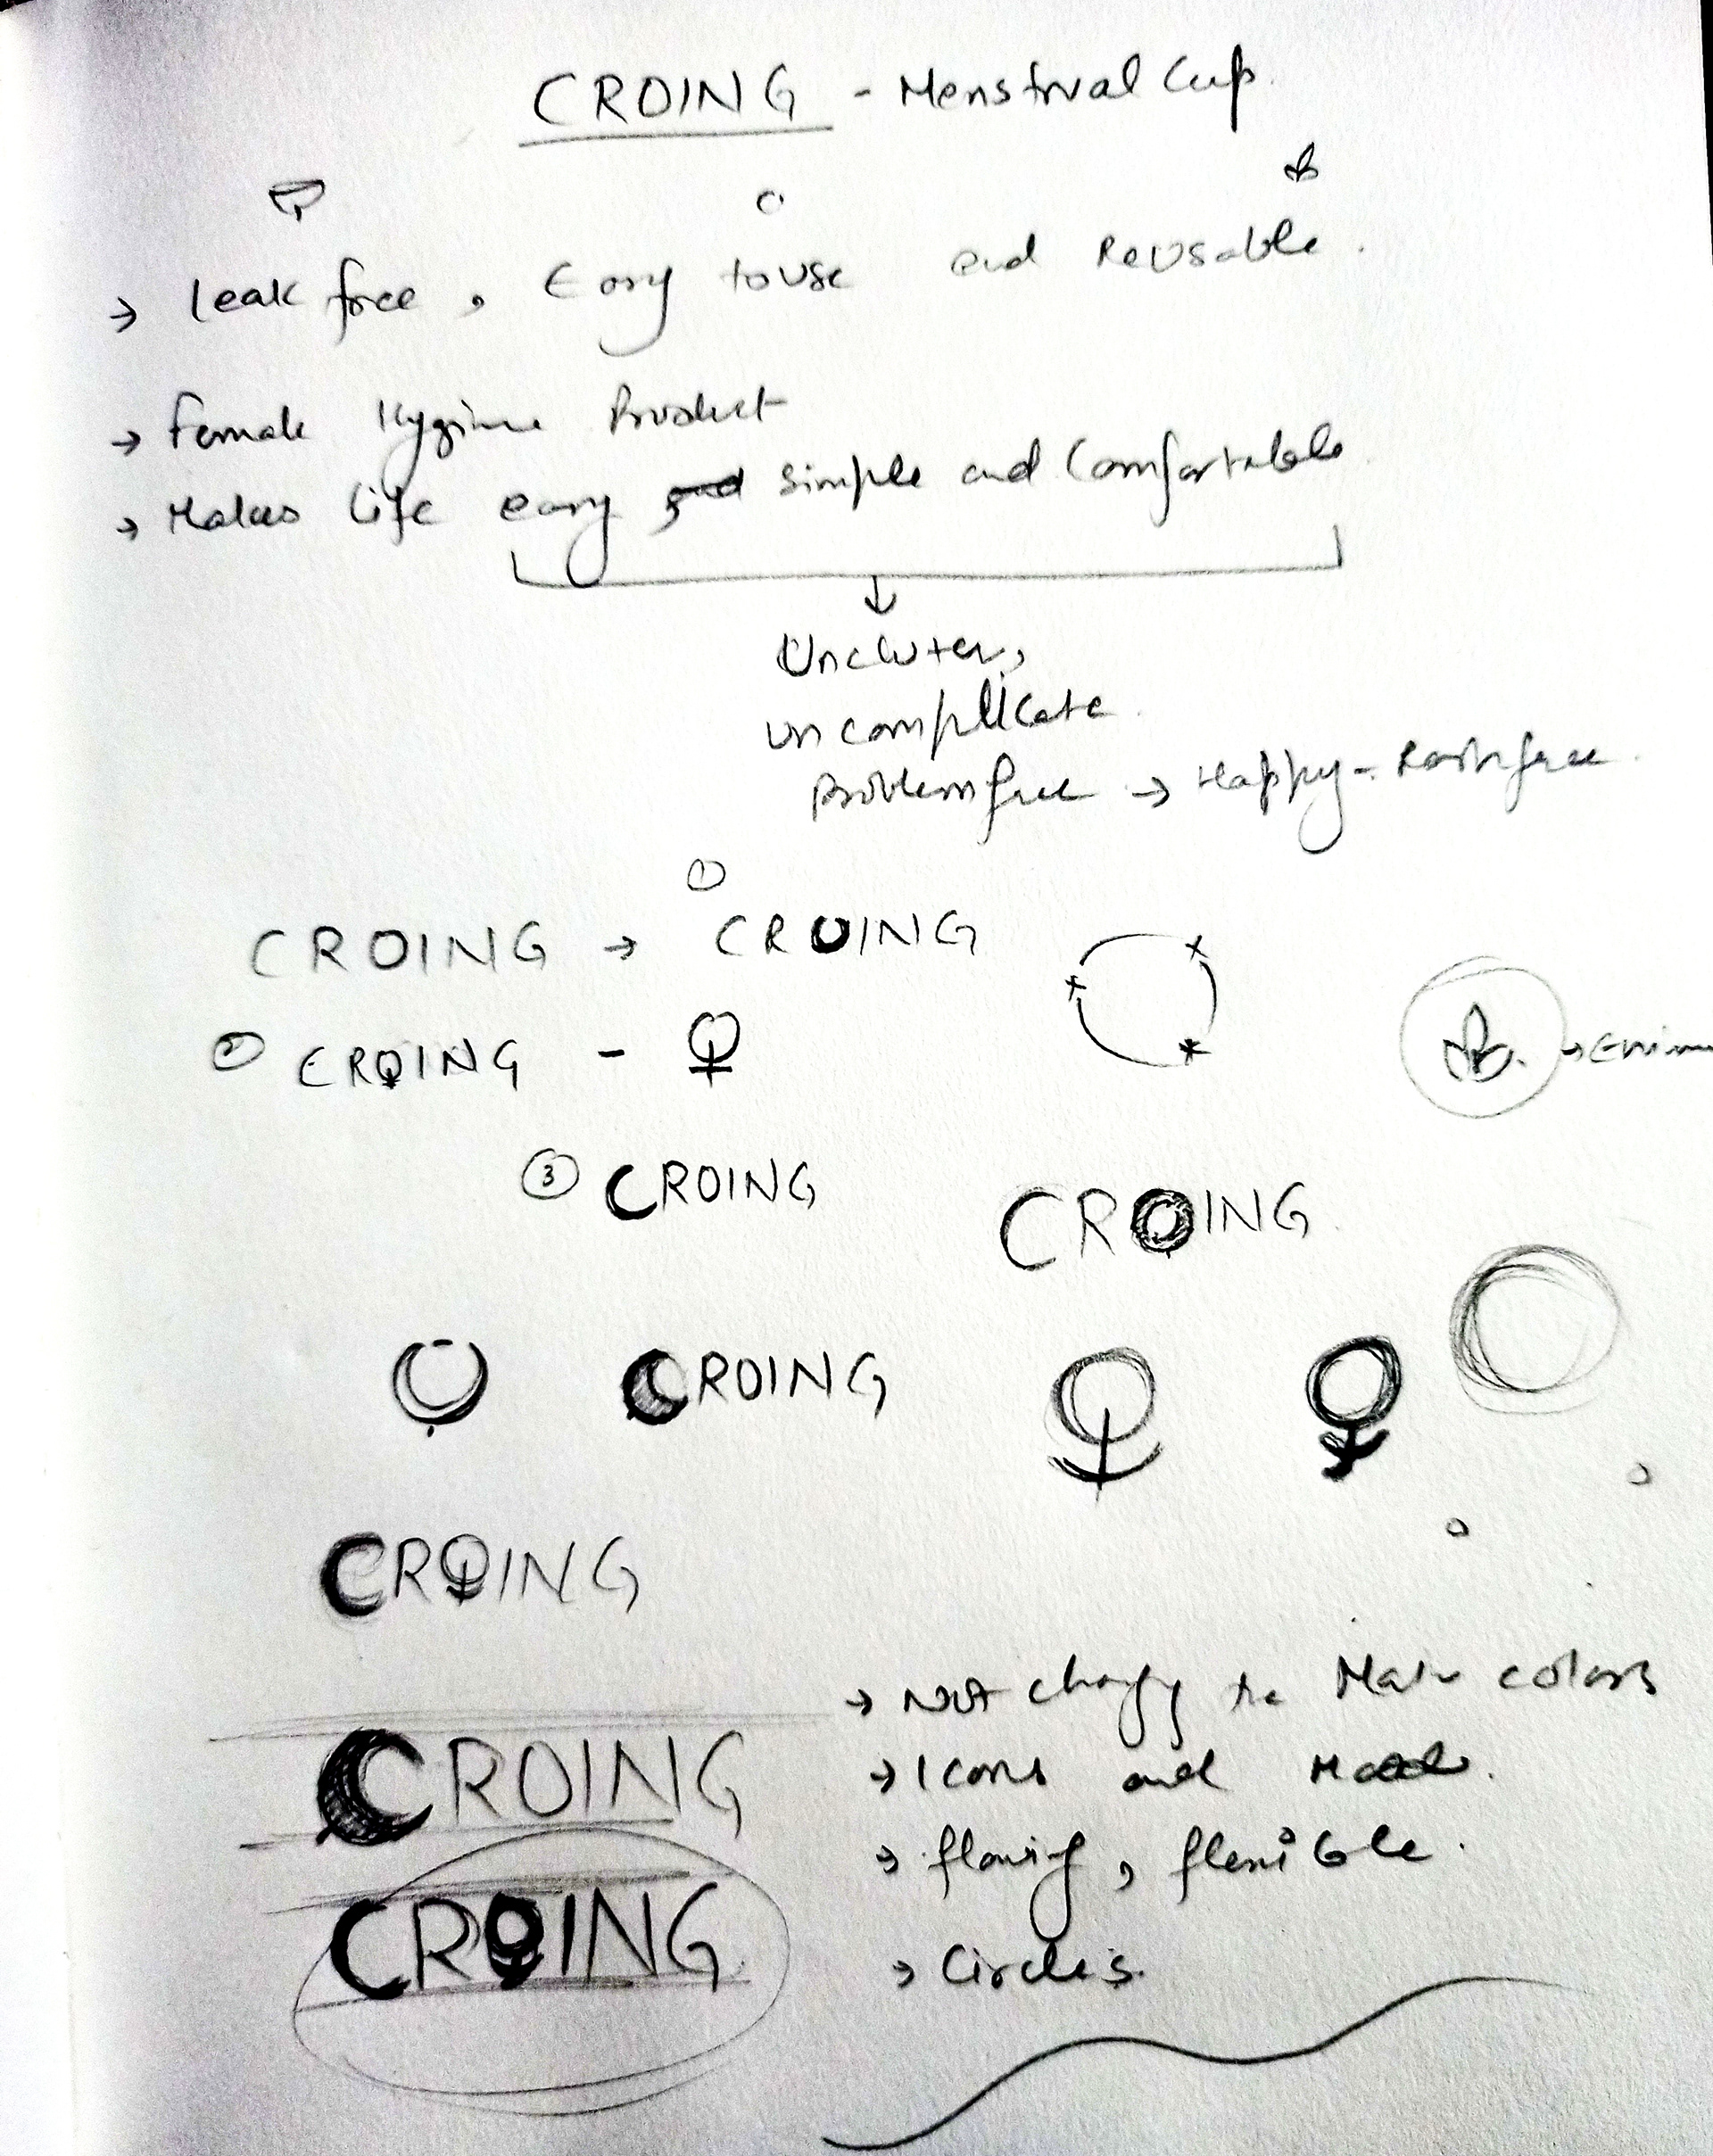 CROING - Menstrual Cup.
→ leak free, Easy to use and Reusable.
→ female Hygine Product
→ Makes Life easy simple and Comfortable
↓
Uncluter,
uncomplicate.
Problem free → Happy - Rashfree.
①
CROING → CROING
② CROING - ♀
③ CROING
CROING
CROING
CROING
→ Not the colors
→ Icons and
CROING
→ flowing, flexible.
CROING
→ Circles.